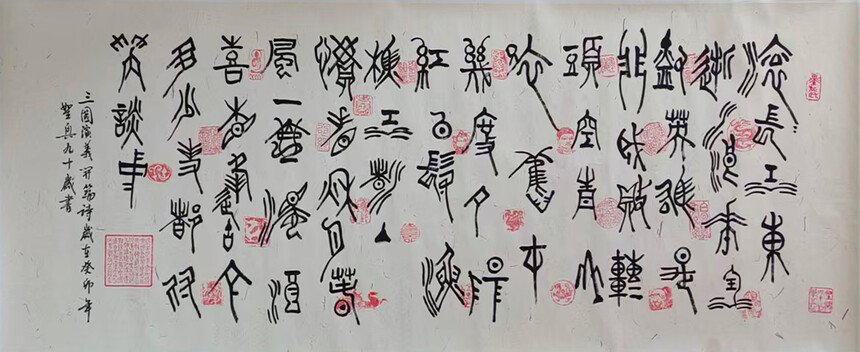 滾長江東
逝水浪花淘
盡英雄是
非成敗轉
頭空青山
依舊在
幾度夕陽
紅白髮漁
樵江渚上
慣看秋月春
風一壺濁酒
喜相逢古今
多少事都付
笑談中
三國演義开篇詩歲在癸卯年
九十歲書